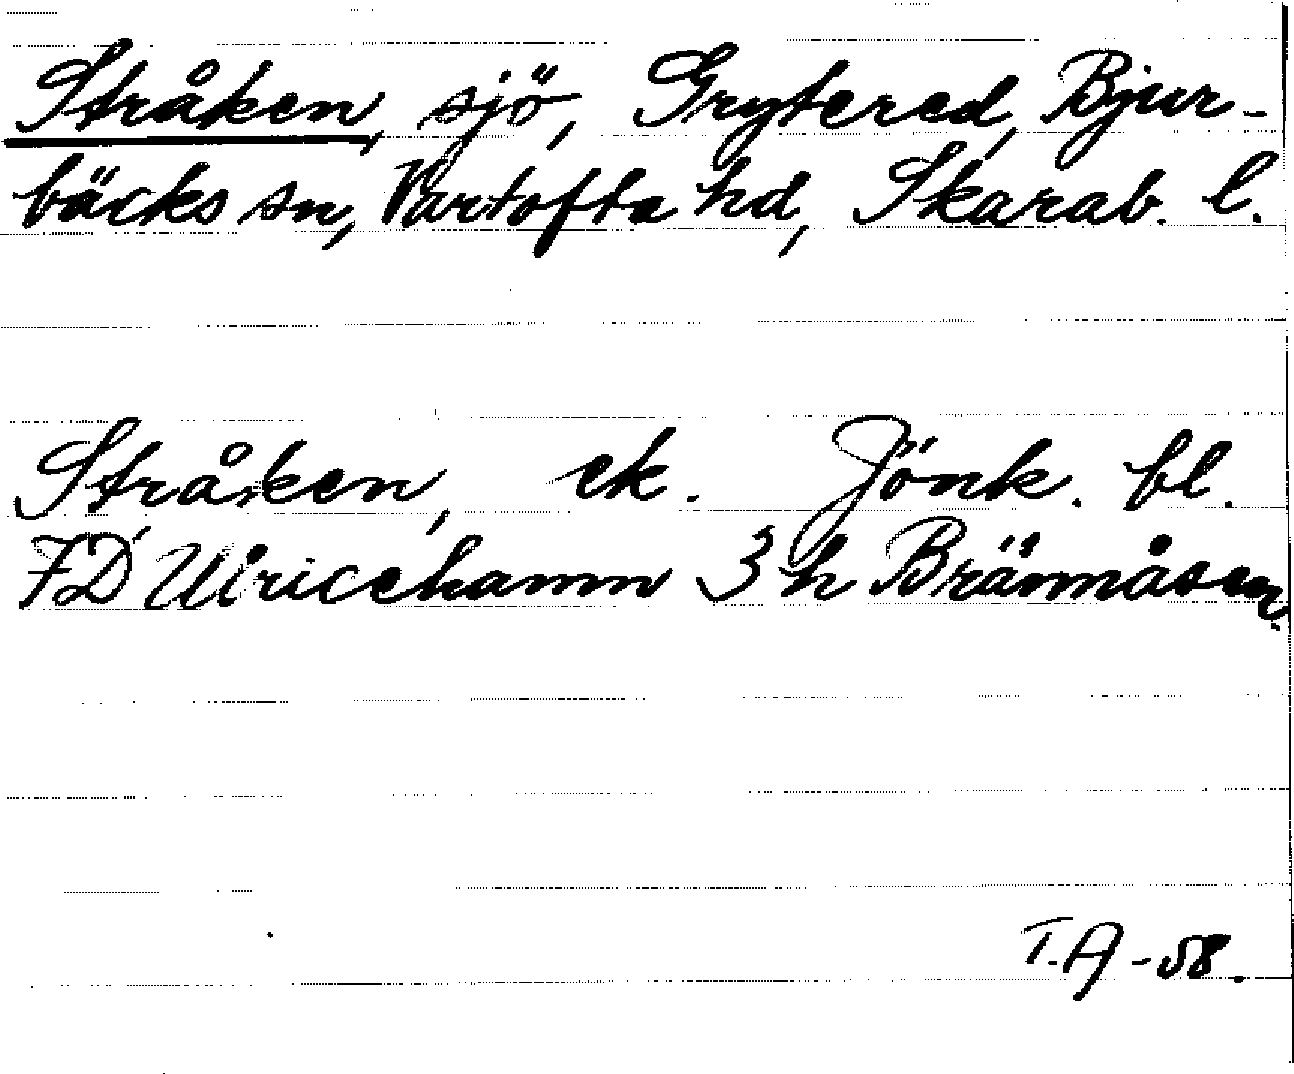 Stråken, sjö, Grytered, Bjur-
bäcks sn, Vartofta hd, Skarab. l.
Stråken, ek. Jönk. bl.
7D Ulricehamn 3 h Brännåsen.
T.A -58.